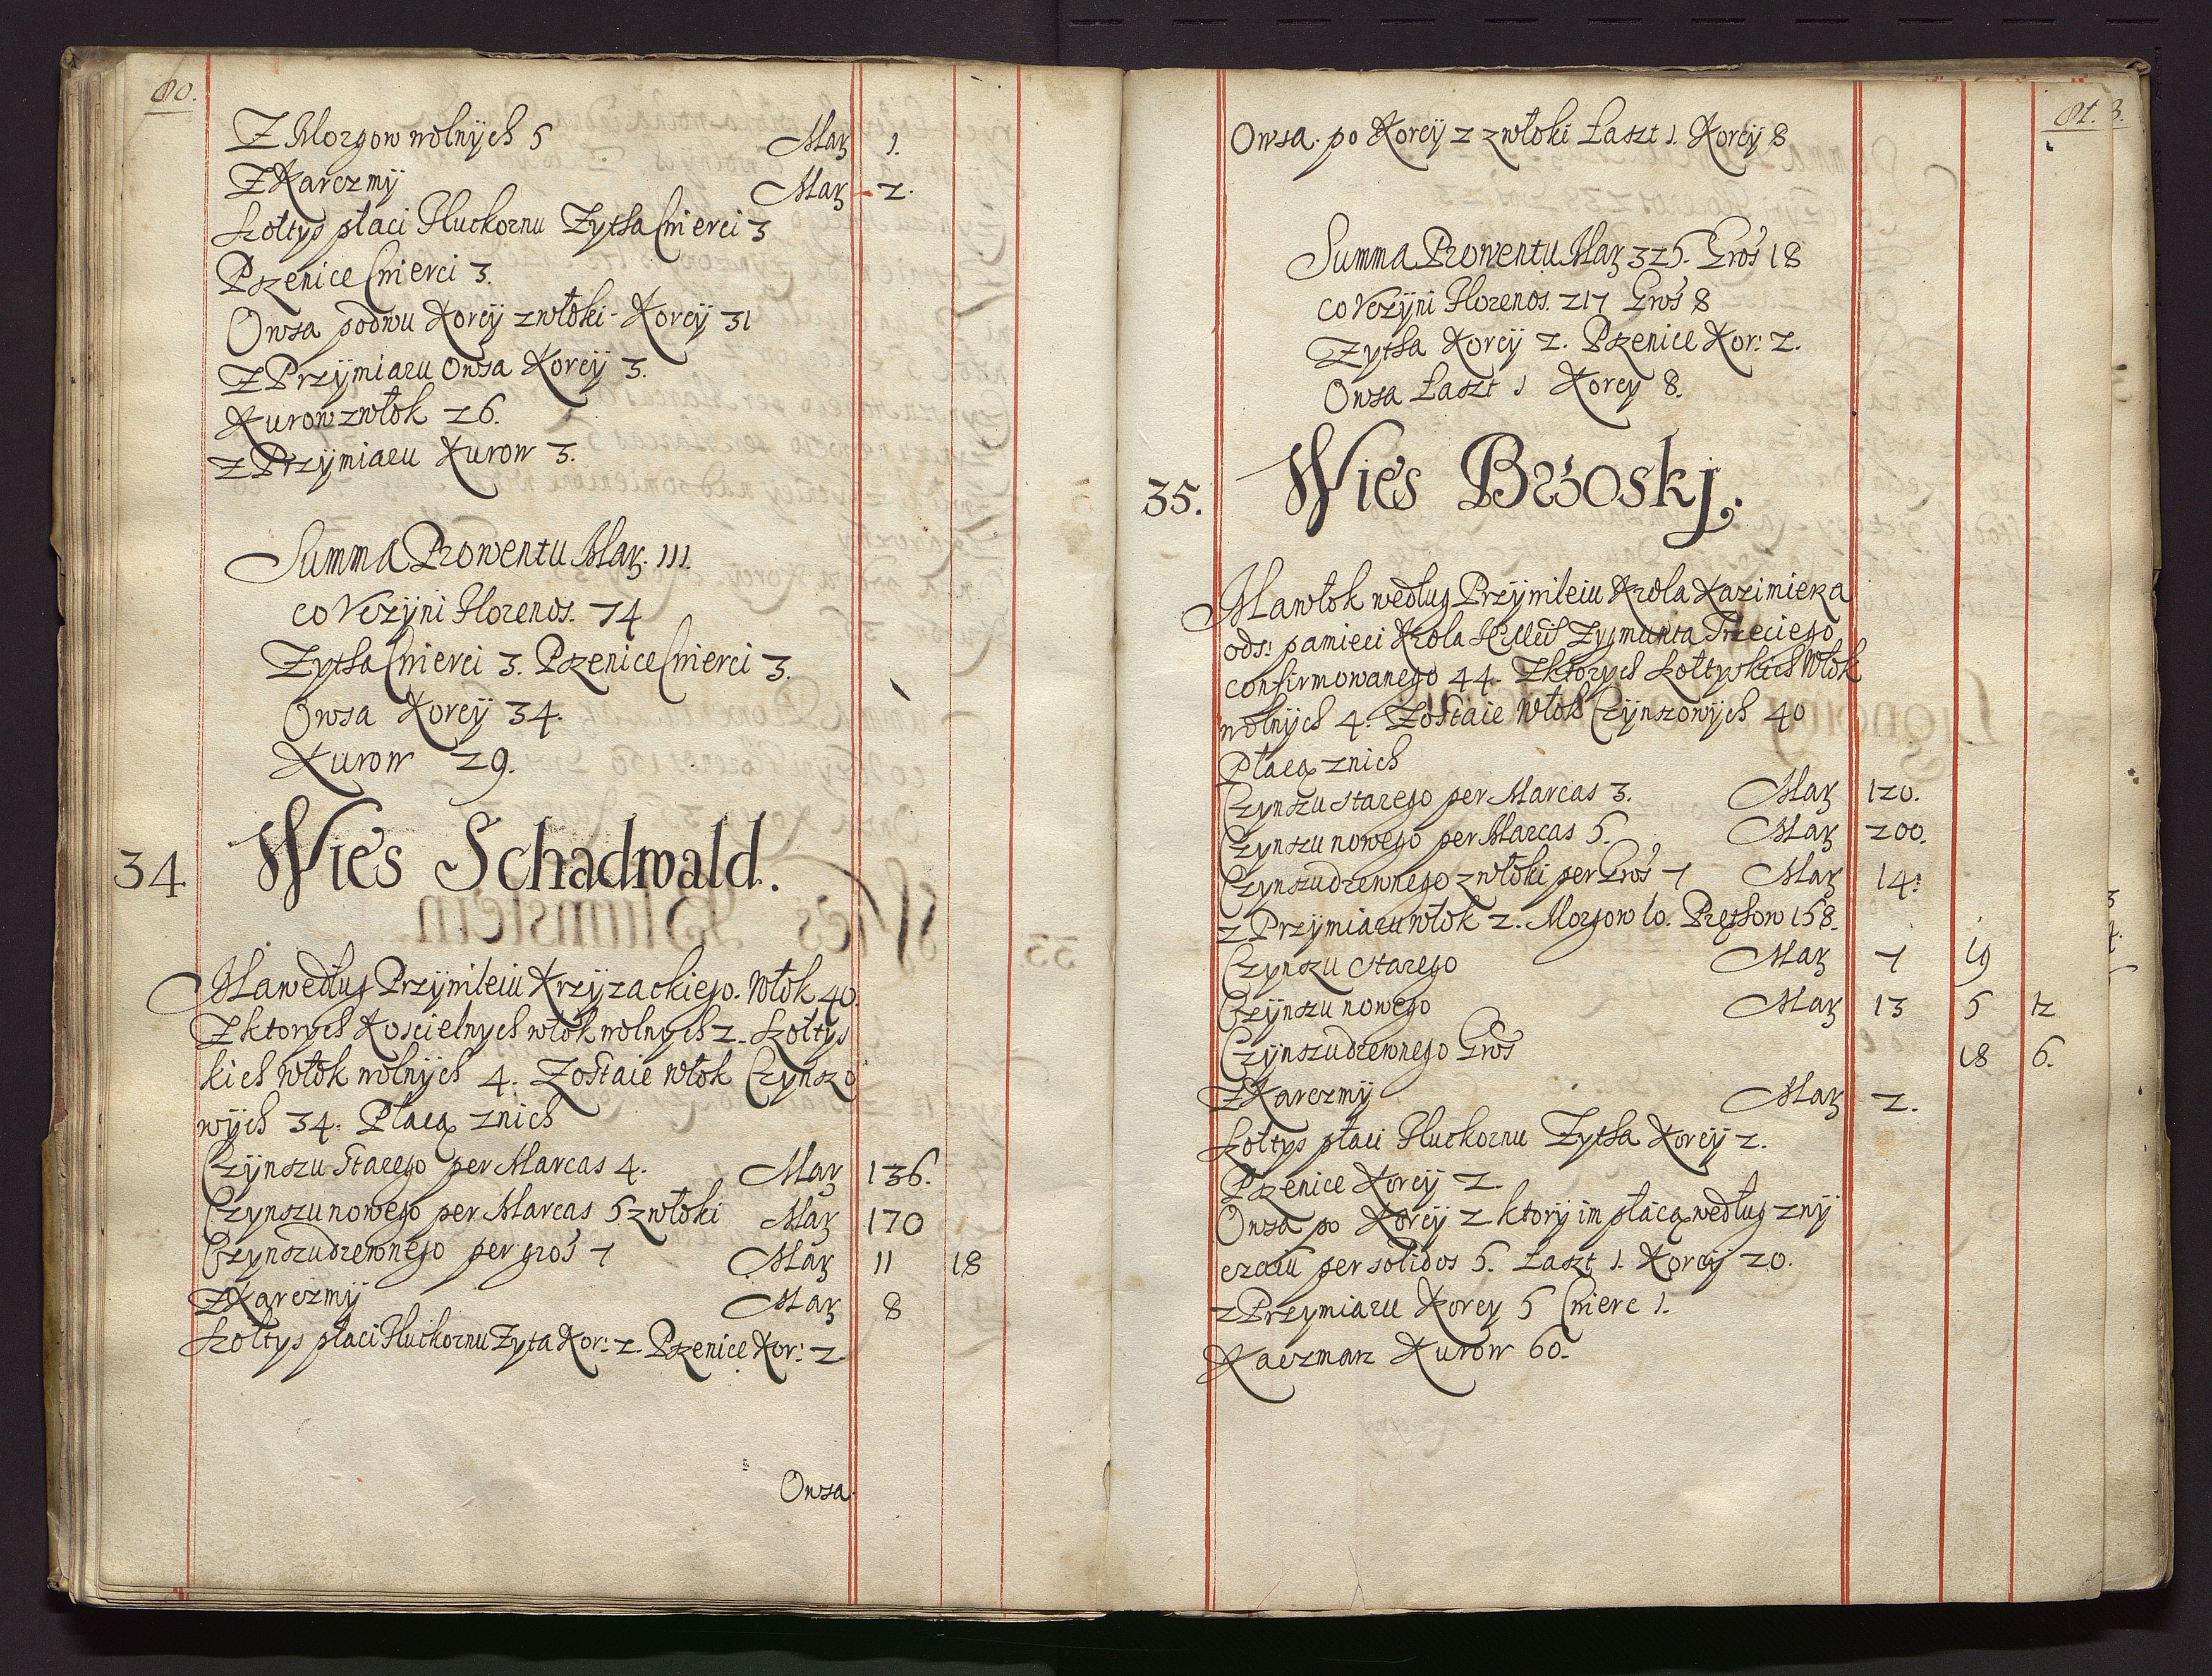 80.
Z Morgow wolnych 5 Mar 1.
Z Karczmÿ Mar 2.
Szołtys płaci Pluckornu Zytha Cwierci 3
Pszenice Cwierci 3.
Owsa podwu Korcÿ zwłoki Korcÿ 31
Z Przÿmiaru Owsa Korcÿ 3.
Kurow zwłok 26.
Z Przÿmiaru Kurow 3.
Summa Prowentu Mar. 111.
co Vczÿni Florenos. 74
Zytha Cwierci 3. Pszenice Cwierci 3.
Owsa Korcÿ 34.
Kurow 29.
34 Wies Schadwald.
Ma według Przÿwileiu Krzÿzackiego. Włok 40.
Z ktorych Koscielnych włok wolnych 2. Szołtys
kich włok wolnÿch 4. Zostaie włok Czynszo
wÿch 34. Płacą znich
Czÿnszu Starego per Marcas 4. Mar 136.
Czynszu nowego per Marcas 5 zwłoki Mar 170
Czynszu drewnego per gros 7 Mar 11 18
Z Karczmÿ Mar 8
Szołtys płaci Pluckornu Zyta Kor: 2. Pszenice Kor: 2
Owsa.
81.
Owsa. po Korcÿ 2 zwłoki Łaszt 1. Korcÿ 8
Summa Prowentu Mar 325. Gros 18
co Vczÿni Florenos. 217 Gros 8
Zytha Korcÿ 2. Pszenice Kor: 2.
Owsa Łaszt 1 Korcy 8.
35. Wies Brzoskj.
Ma włok według Przÿwileiu Krola Kazimierza
ods: pamieci Krola Zygmunta Trzeciego
confirmowanego 44. Z ktorych Szołtyskich Włok
wolnych 4. Zostaie Włok Czÿnszowÿch 40
Płacą znich
Czynszu starego per Marcas 3. Mar 120.
Czynszu nowego per Marcas 5. Mar 200.
Czynszu drewnego zwłoki per Gros 7 Mar 14.
z Przÿmiaru włok 2. Morgow 10. Prętkow 158.
Czynszu starego Mar 7 19
Czÿnszu nowego Mar 13 5 12
Czynszu drewnego Gros 18 6.
Z Karczmÿ Mar 2.
Szołtys płaci Pluckornu Zytha Korcÿ 2.
Pszenice Korcÿ 2.
Owsa po Korcÿ 2 ktorÿ im płacą według zwÿ
czaiu per solidos 5. Łaszt 1. Korcÿ 20.
z Przymiaru Korcy 5 Cwierc 1.
Kaczmarz Kurow 60.